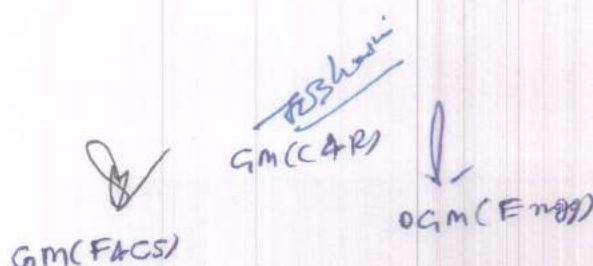 GM(CAR)
DGM(Engg)
GM(FACS)